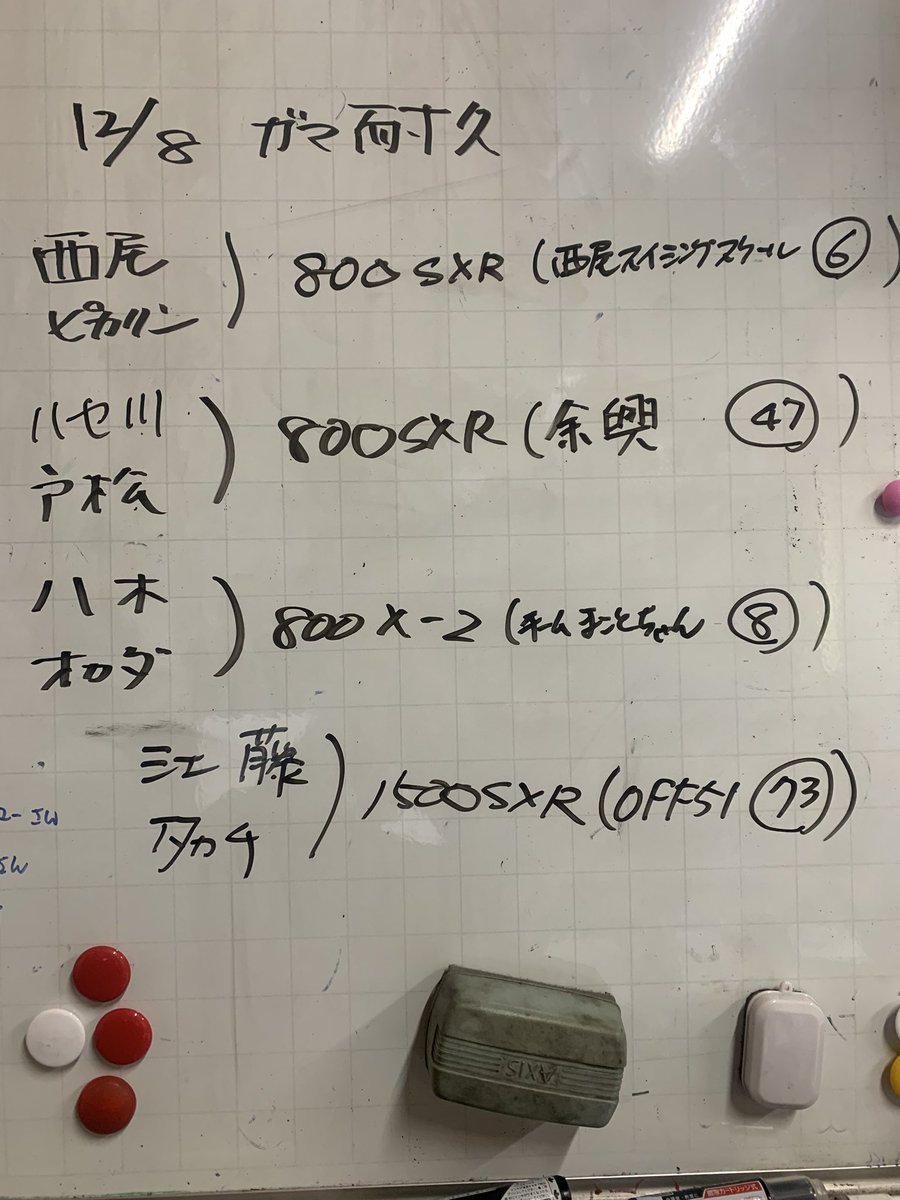 12/8 ガマ耐久
西尾
ピカリン
800SXR (西尾スイミングスクール ⑥)
ハセ川
戸桧
800SXR (余興 ㊼)
八木
オカダ
800 X-2 (チームまことちゃん ⑧)
江藤
タカチ
1500SXR (OFF51 73)
2-JW
JW
AXIS